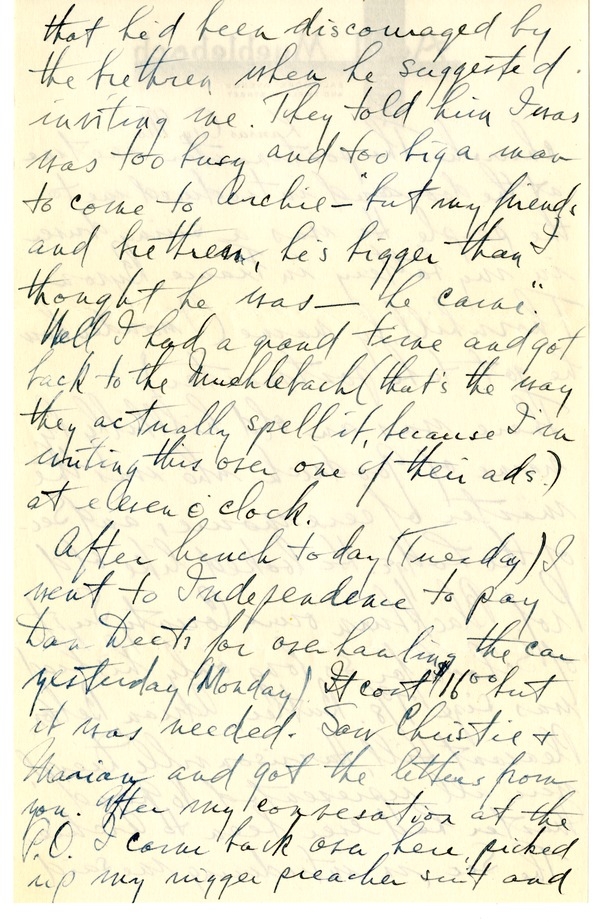 that he'd been discouraged by
the brethren when he suggested
inviting me. They told him I was
was too busy and too big a man
to come to Archie—"but my friends
and brethren, he's bigger than I
thought he was— he came."
Well I had a grand time and got
back to the Muehlebach (that's the way
they actually spell it, because I'm
writing this over one of their ads.)
at eleven o'clock.
After lunch today (Tuesday) I
went to Independence to pay
Dan for overhauling the car
yesterday (Monday) It cost $16.00 but
it was needed. Saw Christie +
Marian and got the letters from
you. After my convesation at the
P.O. I came back over here, picked
up my nigger preacher suit and